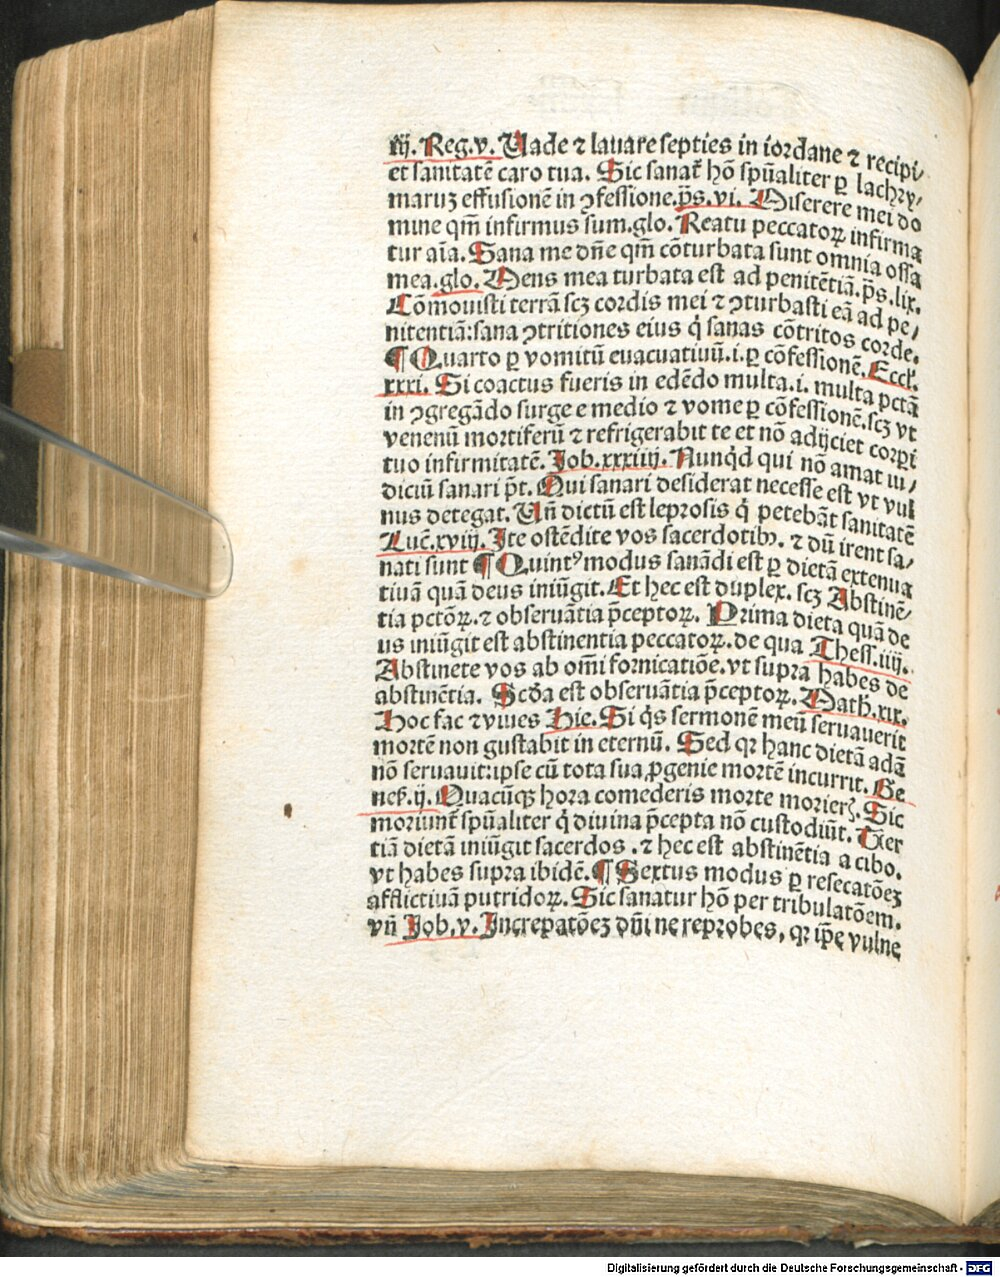 iiij. Reg.v. Uade ⁊ lauare septies in iordane ⁊ recipi⸗
et sanitatē caro tua. Sic sanat̃ hō spūaliter ꝑ lachry⸗
maruꝫ effusionē in ꝯfessione.p̄s.vi. Miserere mei do
mine qm̄ infirmus sum.glo. Reatu peccatoꝝ infirma
tur aīa. Sana me dn̄e qm̄ cōturbata sunt omnia ossa
mea.glo. Mens mea turbata est ad penitētiā. p̄s. lix.
Cōmouisti terrā scꝫ cordis mei ⁊ ꝯturbasti eā ad pe⸗
nitentiā: sana ꝯtritiones eius q̇ sanas cōtritos corde.
¶ Quarto ꝑ vomitū euacuatiuū.i.ꝑ cōfessionē. Eccƚ.
xxxi. Si coactus fueris in edēdo multa.i. multa pctā
in ꝯgregādo surge e medio ⁊ vome ꝑ cōfessionē.scꝫ vt
venenū mortiferū ⁊ refrigerabit te et nō adijciet corpi
tuo infirmitatē. Job.xxxiiij. Nunqd̓ qui nō amat iu⸗
diciū sanari p̄t. Qui sanari desiderat necesse est vt vul
nus detegat. Un̄ dictū est leprosis q̇ petebāt sanitatē
Luc̄.xviij. Ite ostēdite vos sacerdotibꝰ. ⁊ dū irent sa⸗
nati sunt ¶ Quintꝰ modus sanādi est ꝑ dietā extenua
tiuā quā deus iniūgit. Et hec est duplex. scꝫ Abstinē⸗
tia pctōꝝ. ⁊ obseruātia p̄ceptoꝝ. Prima dieta quā de
us iniūgit est abstinentia peccatoꝝ. de qua Thess.iiij.
Abstinete vos ab om̄i fornicatiōe. vt supra habes de
abstinētia. Scd̓a est obseruātia p̄ceptoꝝ. Math.xix.
Hoc fac ⁊ viues Hie. Si q̇s sermonē meū seruauerit
mortē non gustabit in eternū. Sed qꝛ hanc dietā adā
nō seruauit: ipse cū tota sua ꝓgenie mortē incurrit. Ge
nes̄.ij. Quacūqꝫ hora comederis morte morierꝭ. Sic
moriunt̃ spūaliter q̇ diuina p̄cepta nō custodiūt. Ter
tiā dietā iniūgit sacerdos . ⁊ hec est abstinētia a cibo.
vt habes supra ibidē. ¶ Sextus modus ꝑ resecatōeꝫ
afflictiuā putridoꝝ. Sic sanatur hō per tribulatōem.
vn̄ Job.v. Increpatōeꝫ dn̄i ne reprobes, qꝛ ip̄e vulne
Digitalisierung gefördert durch die Deutsche Forschungsgemeinschaft - DFG